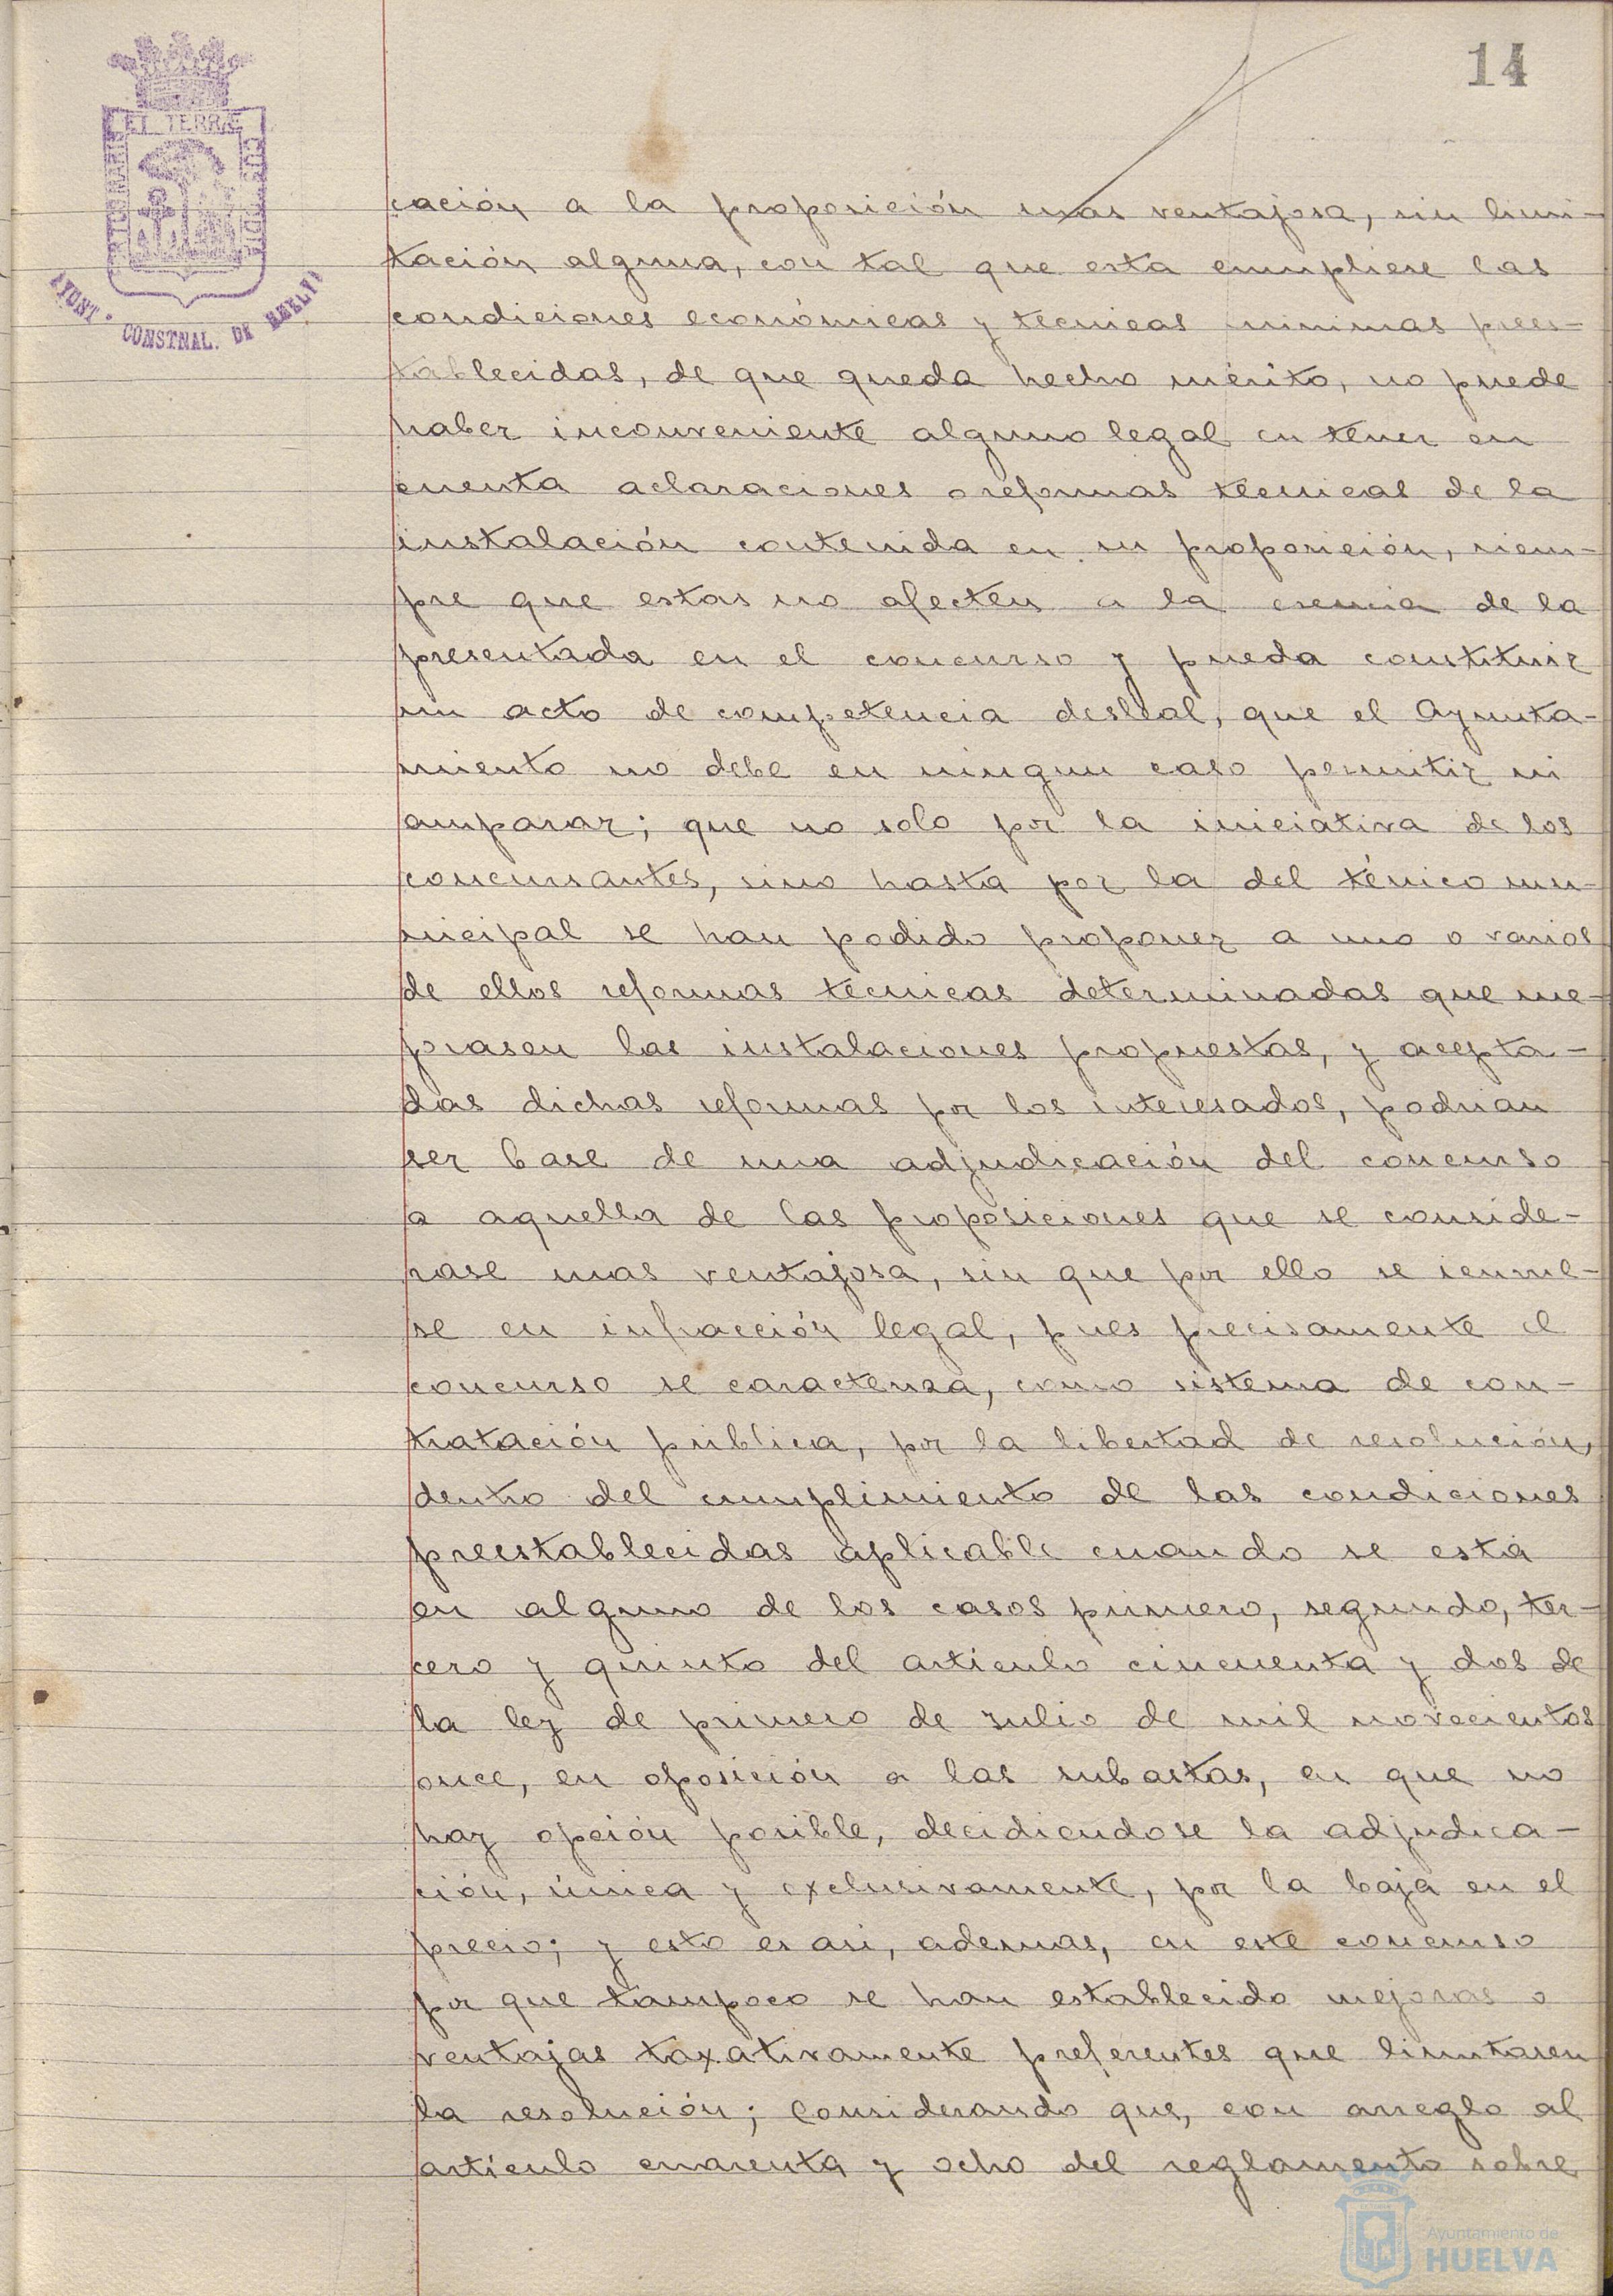 14
ET TERRÆ
AYUNT.º CONSTNAL. DE HUELVA
cación a la proposición mas ventajosa, sin limi-
tación alguna, con tal que esta cumpliese las
condiciones económicas y tecnicas minimas prees-
tablecidas, de que queda hecho mérito, no puede
haber inconveniente alguno legal en tener en
cuenta aclaraciones o reformas tecnicas de la
instalación contenida en su proposición, siem-
pre que estas no afecten a la esencia de la
presentada en el concurso y pueda constituir
un acto de competencia desleal, que el Ayunta-
miento no debe en ningun caso permitir ni
amparar; que no solo por la iniciativa de los
concursantes, sino hasta por la del ténico mu-
nicipal se han podido proponer a uno o varios
de ellos reformas tecnicas determinadas que me-
jorasen las instalaciones propuestas, y acepta-
das dichas reformas por los interesados, podrian
ser base de una adjudicación del concurso
a aquella de las proposiciones que se conside-
rase mas ventajosa, sin que por ello se
se en infracción legal, pues precisamente el
concurso se caracteriza, como sistema de con-
tratación pública, por la libertad de resolución,
dentro del cumplimiento de las condiciones
preestablecidas aplicable cuando se está
en alguno de los casos primero, segundo, ter-
cero y quinto del articulo cincuenta y dos de
la ley de primero de Julio de mil novecientos
once, en oposición a las subastas, en que no
hay opción posible, decidiendose la adjudica-
ción, única y exclusivamente, por la baja en el
precio; y esto es asi, ademas, en este concurso
por que tampoco se han establecido mejoras o
ventajas taxativamente preferentes que limitasen
la resolución; Considerando que, con arreglo al
artículo cuarenta y ocho del reglamento sobre
Ayuntamiento de
HUELVA